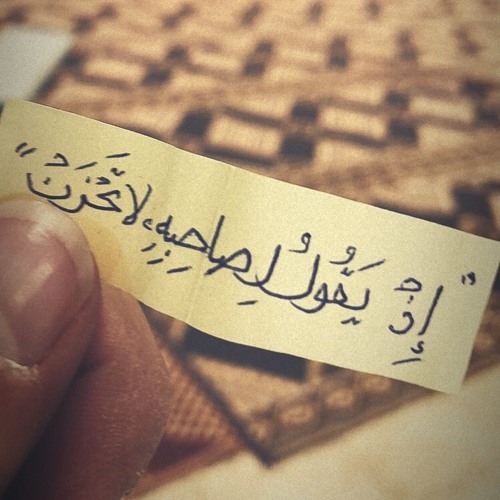 "إِذْ يَقُولُ لِصَاحِبِهِ، لَا تَحْزَنْ"